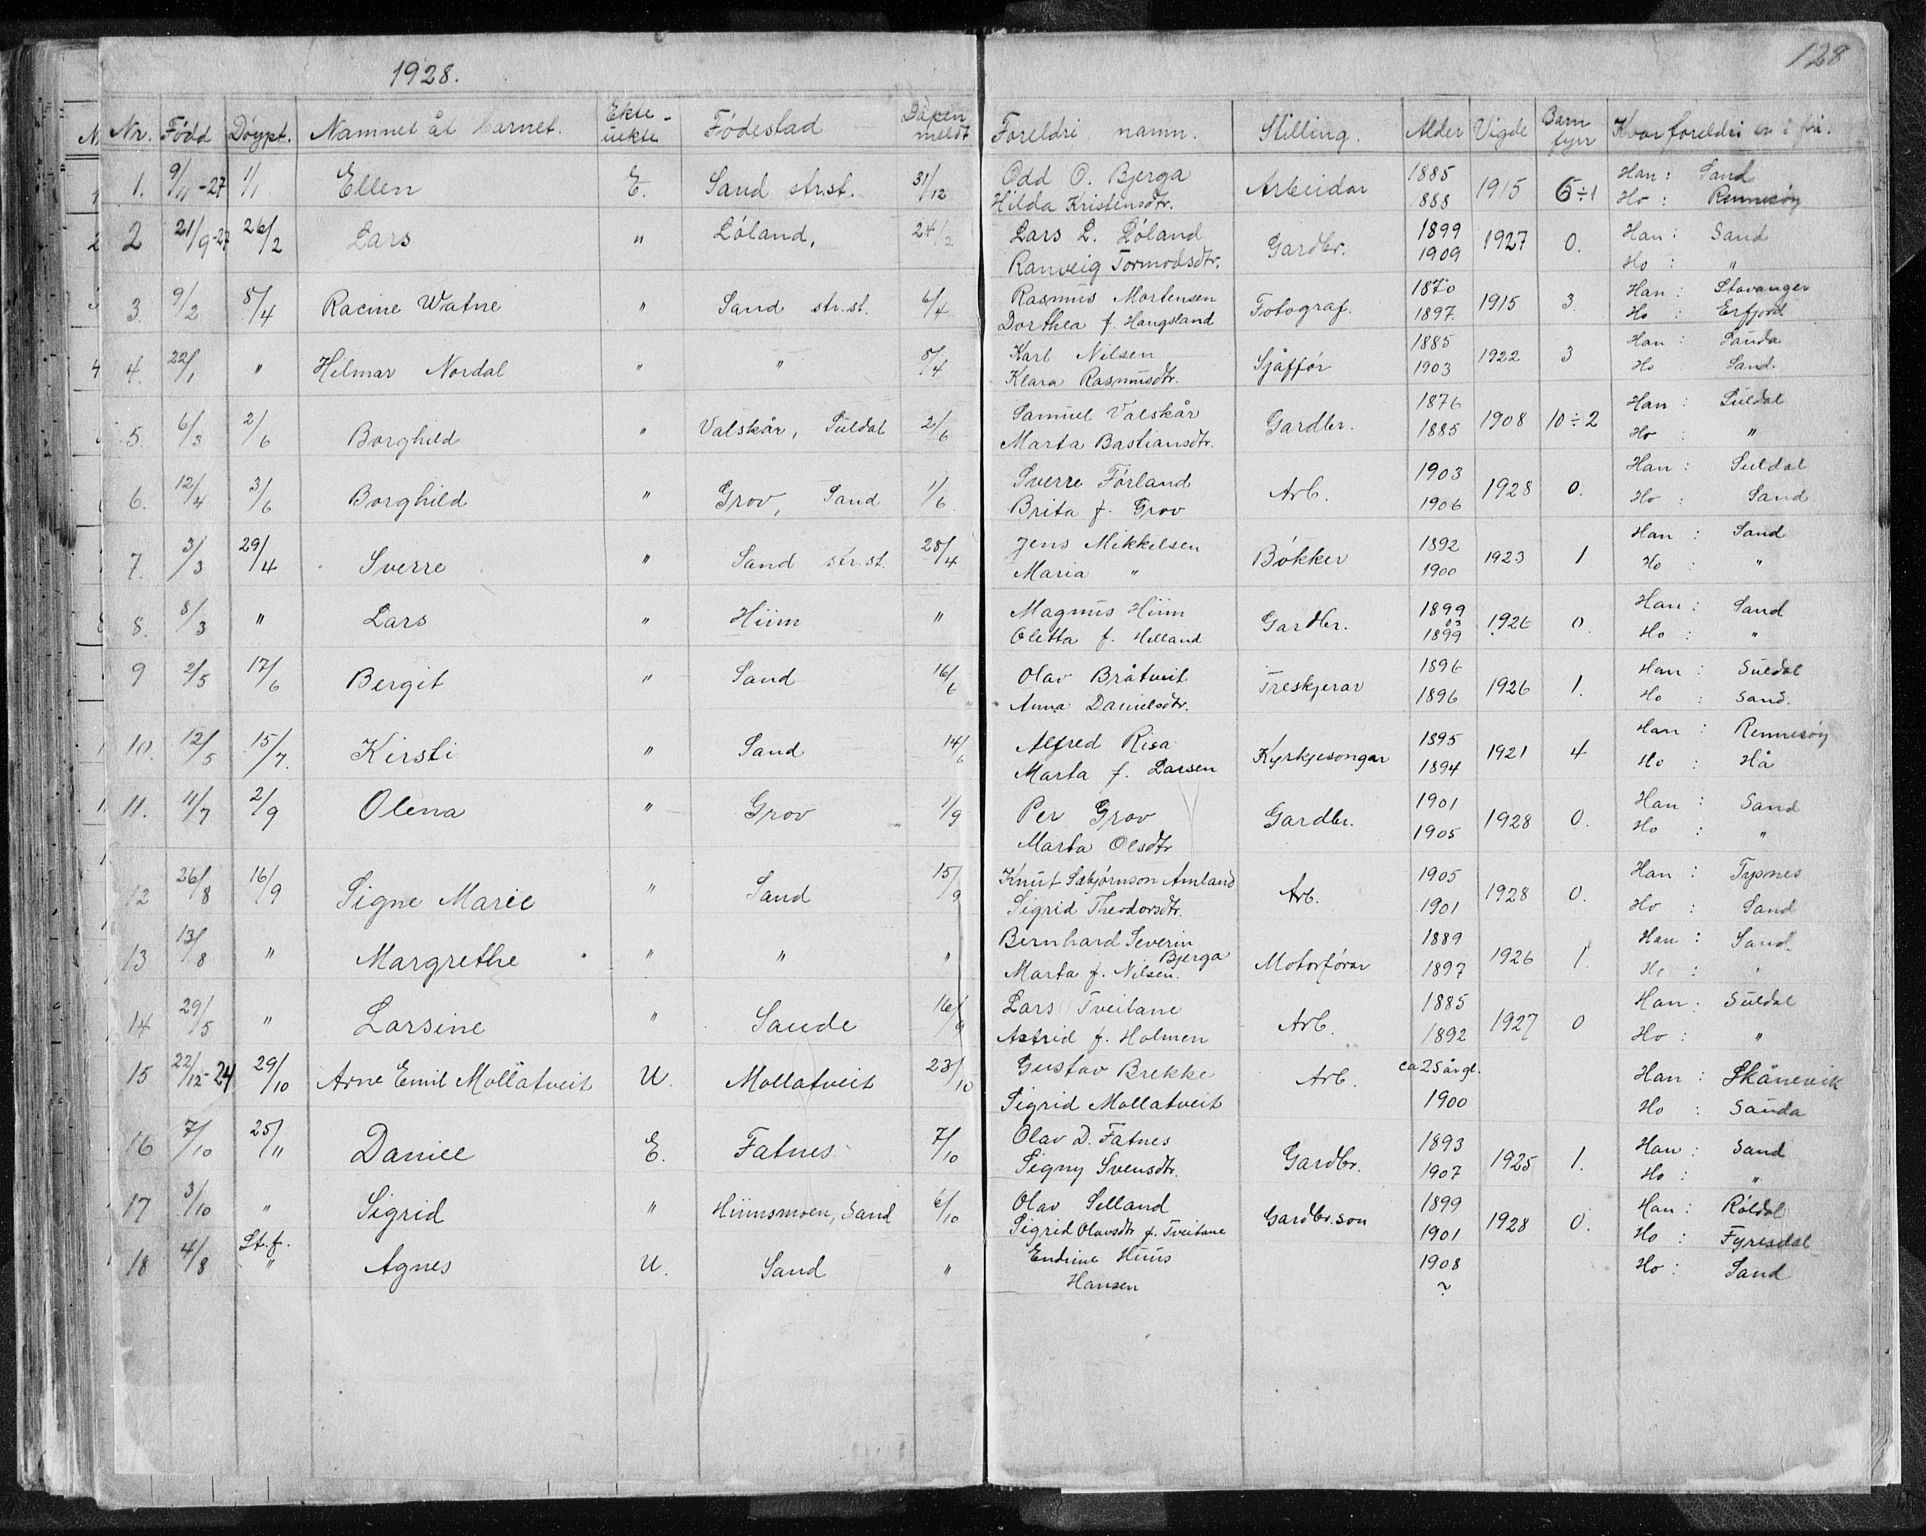 1928.
128
Nr. Född Döypt. Namnet åt barnet. Ekte - uekte Födestad Dåpen meldt Foreldri namn. Stilling. Alder Vigde Barn fyrr Kvar foreldri er i frå.
1. 9/11-27 1/1 Ellen E. Sand str.st. 31/12 Odd O. Bjerga Arbeidar 1885 1915 6÷1 Han: Sand
Hilda Kristensdtr. 888 Ho : Rennesöy
2 21/9-27 26/2 Lars " Löland, 24/2 Lars L. Löland Gardbr. 1899 1927 0. Han: Sand
Ranveig Tormodsdtr. 1909 Ho : "
3. 9/2 8/4 Racine Watne " Sand str.st. 6/4 Rasmus Mortensen Fotograf. 1870 1915 3. Han: Stavanger
Dorthea f. Haugsland 1897. Ho : Erfjord
4. 22/1 " Helmar Nordal " " 5/4 Karl Nilsen Sjåfför 1885 1922 3 Han : Sauda
Klara Rasmusdtr. 1903 Ho : Sand.
5. 6/3 2/6 Borghild " Valskår, Suldal 2/6 Samuel Valskår Gardbr. 1876 1908 10÷2 Han : Suldal
Marta Bastiansdtr. 1885 Ho : "
6. 12/4 3/6 Borghild " Grov, Sand 1/6 Sverre Förland Arb. 1903 1928 0. Han : Suldal
Brita f. Grov 1906 Ho : Sand
7. 3/3 29/4 Sverre " Sand str.st. 28/4 Jens Mikkelsen Bökker 1892 1923 1 Han : Sand
Maria " 1900 Ho : "
8. 8/3 " Lars " Hiim " Magnus Hiim Gardbr. 1899 1926 0. Han : Sand
Oletta f. Helland 1899 Ho : "
9 2/5 17/6 Bergit " Sand 16/6 Olav Bråtveit Treskjerar 1896 1926 1. Han : Suldal
Anna Danielsdtr. 1896 Ho : Sand.
10. 12/5 15/7. Kirsti " Sand 14/6 Alfred Risa Kyrkjesongar 1895 1921 4 Han : Rennesöy
Marta f. Larsen 1894 Ho : Hå
11. 11/7 2/9 Olena " Grov 1/9 Per Grov Gardbr. 1901 1928 0. Han : Sand
Marta Olsdtr 1905 Ho : "
12 26/8 16/9 Signe Marie " Sand 15/9 Knut Sæbjörnson Amland Arb. 1905 1928 0. Han : Tysnes
Sigrid Theodorsdtr. 1901 Ho : Sand
13 13/8 " Margrethe " " " Bernhard Severin Bjerga Motorförar 1889 1926 1. Han : Sand.
Marta f. Nilsen. 1897 Ho : "
14 29/5 " Larsine " Saude 16/9 Lars Tveitane Arb. 1885 1927 0 Han : Suldal
Astrid f. Holmen 1892 Ho : "
15 22/12-24 29/10 Arne Emil Mollatveit U. Mollatveit 28/10 Gustav Brekke Arb. ca 25 år gl. Han : Skånevik
Sigrid Mollatveit 1900 Ho : Sauda
16 7/10 25/11 Daniel E. Fatnes 7/10 Olav D. Fatnes Gardbr. 1893 1925 1. Han : Sand
Signy Svensdtr. 1907 Ho : "
17 3/10 " Sigrid " Hiimsmoen, Sand 6/10 Olav Selland Gardbr.son 1899 1928 0. Han : Röldal
Sigrid Olavsdtr f. Tveitane 1901 Ho : Fyresdal
18 4/8 St.f. " Agnes U. Sand " Endrine Huus 1908 Ho : Sand
Hansen ~